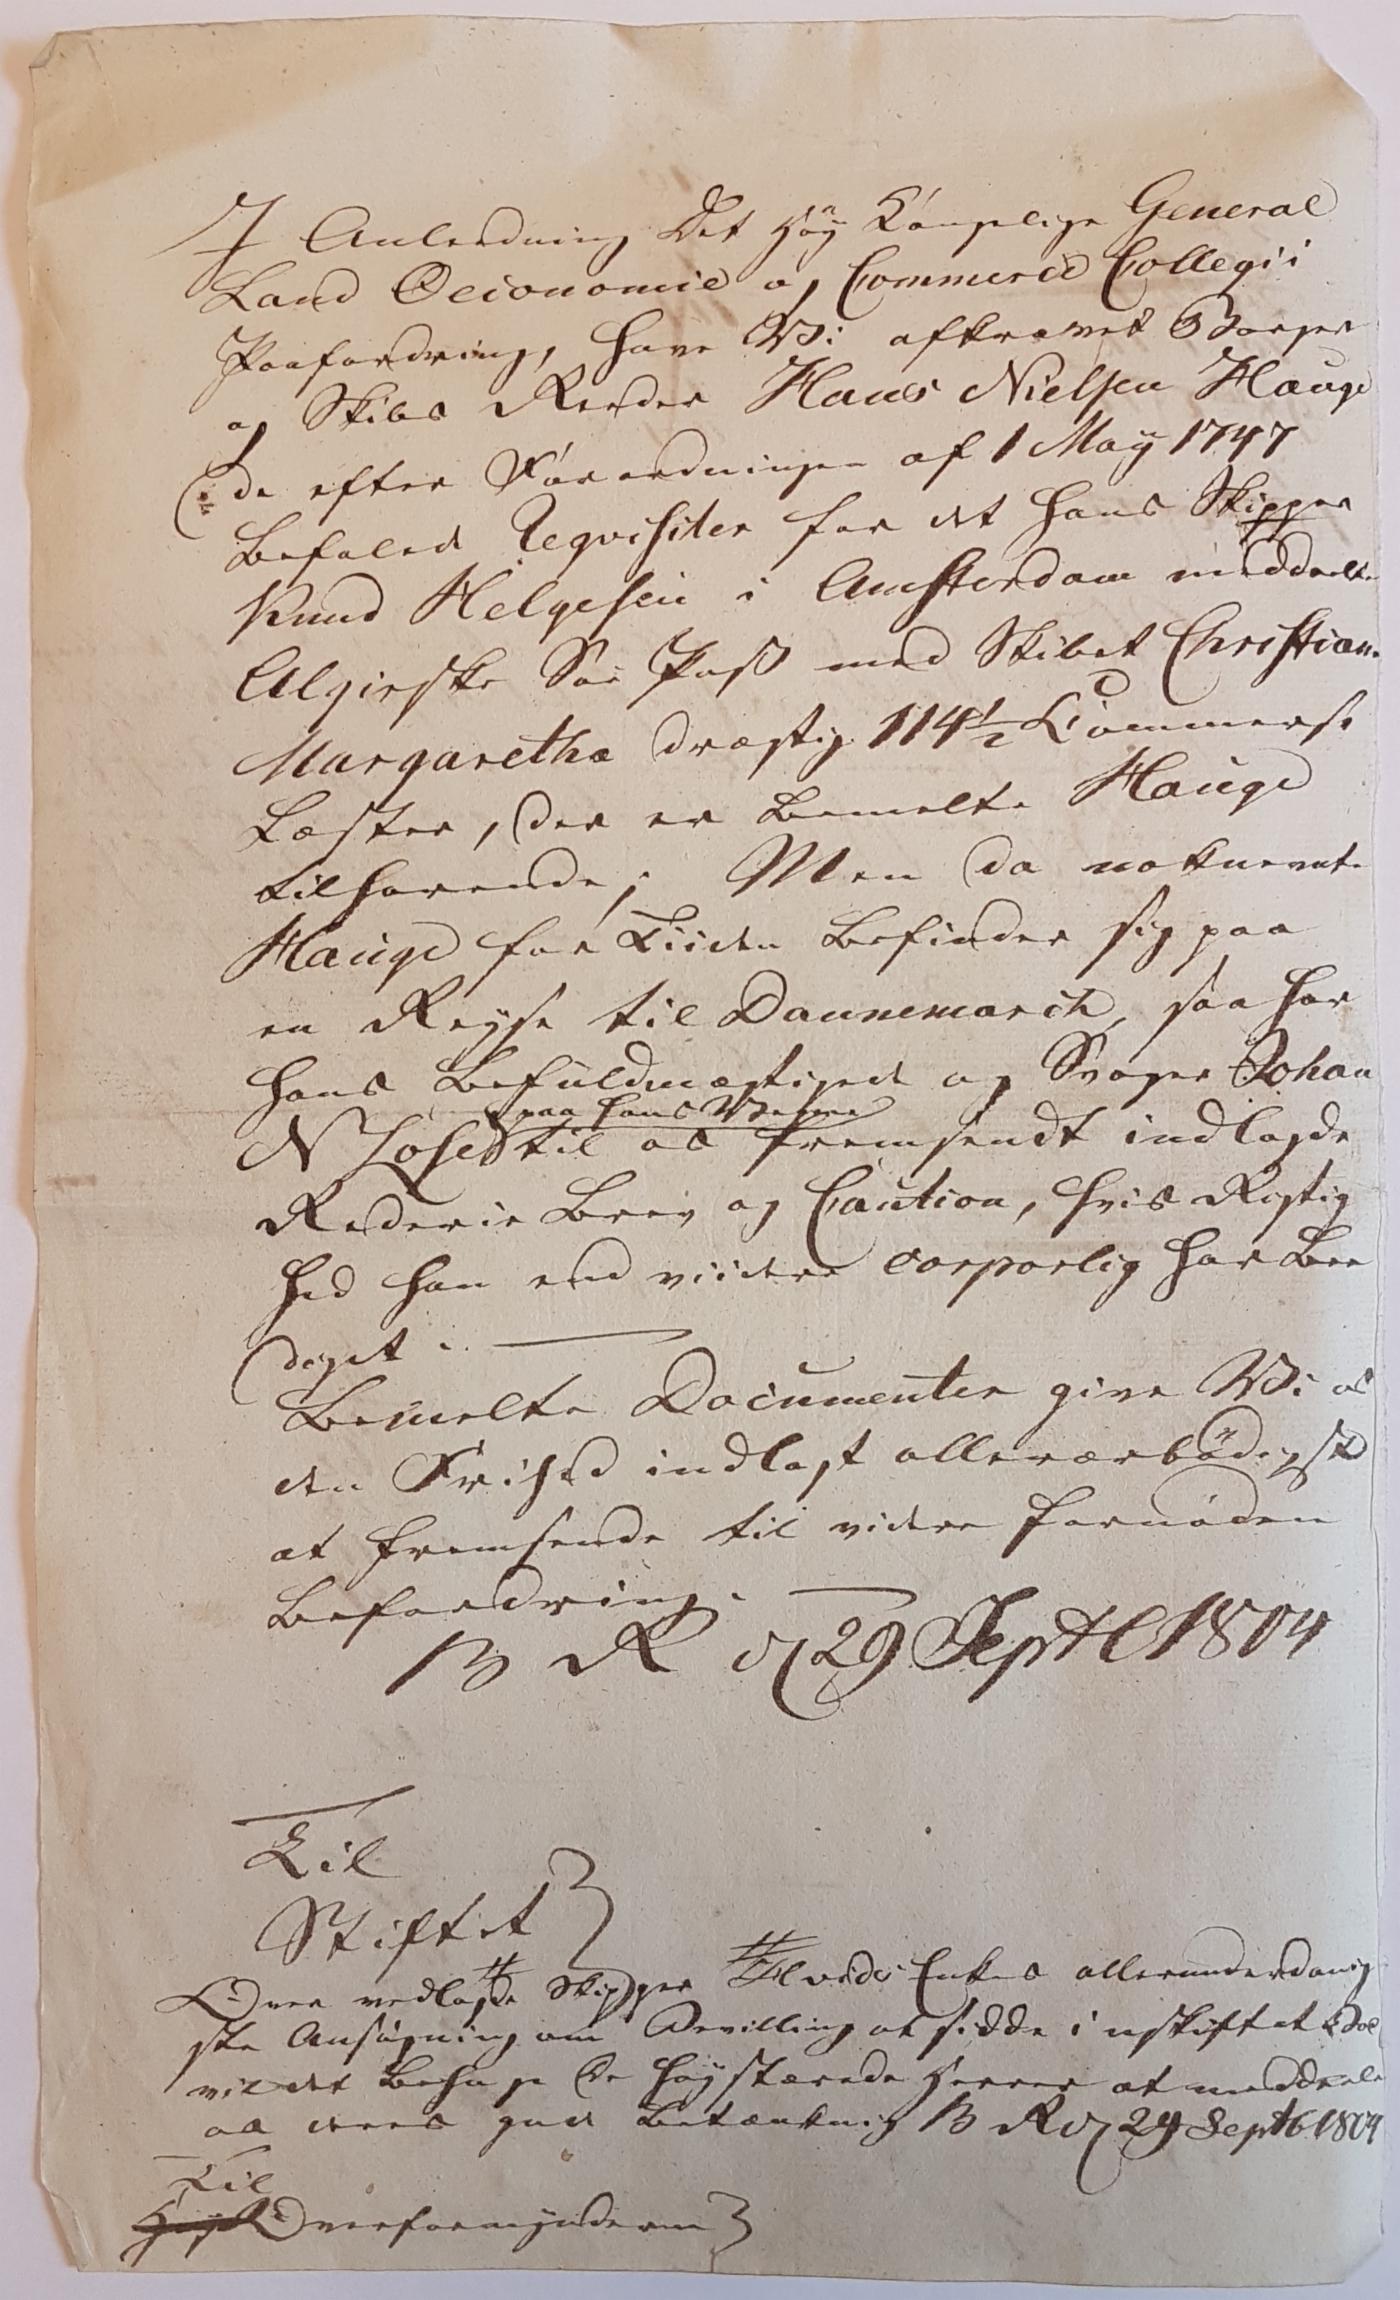 I Anledning Det høy Kongelige General
Land Oeconomie og Commerce Collegii
Paafordring, have Vi afkrævet Borger
og Skibs Reeder Hans Nielsen Hauge
de efter Forordningen af 1 May 1747
befalede Reqvisiter for det hans Skipper
Knud Helgesen i Amsterdam meddeelte
Algierske Søe Pass med Skibet Christiane
Margaretha drægtig 114 1/2 Commerse
Læster, der er bemelte Hauge
tilhørende; Men da noksnevnte
Hauge for Tiiden befinder sig paa
en Reyse til Dannemarck, saa har
hans Befuldmægtigede og Svoger Johan
paa hans Vegne
N Loose til os fremsendt indlagde
Rederie Brev og Caution, hvis Rigtig
hed han end viidere corporlig har bee
diget. —
Bemelte Documenter give Vi os
den Friehed indlagt allerærbødigst
at fremsende til videre fornøden
Befordring. —
B R d 29 Septb 1804
Til
Stiftet
Over vedlagde Skipper Enkes allerunderdanig
ste Ansøgning om Bevilling at sidde i uskiftet Boe
vil det behage De høystærede Herrer at meddeele
os deres gode Betænkning B R d 29 Septb 1804
Til
Overformynderne